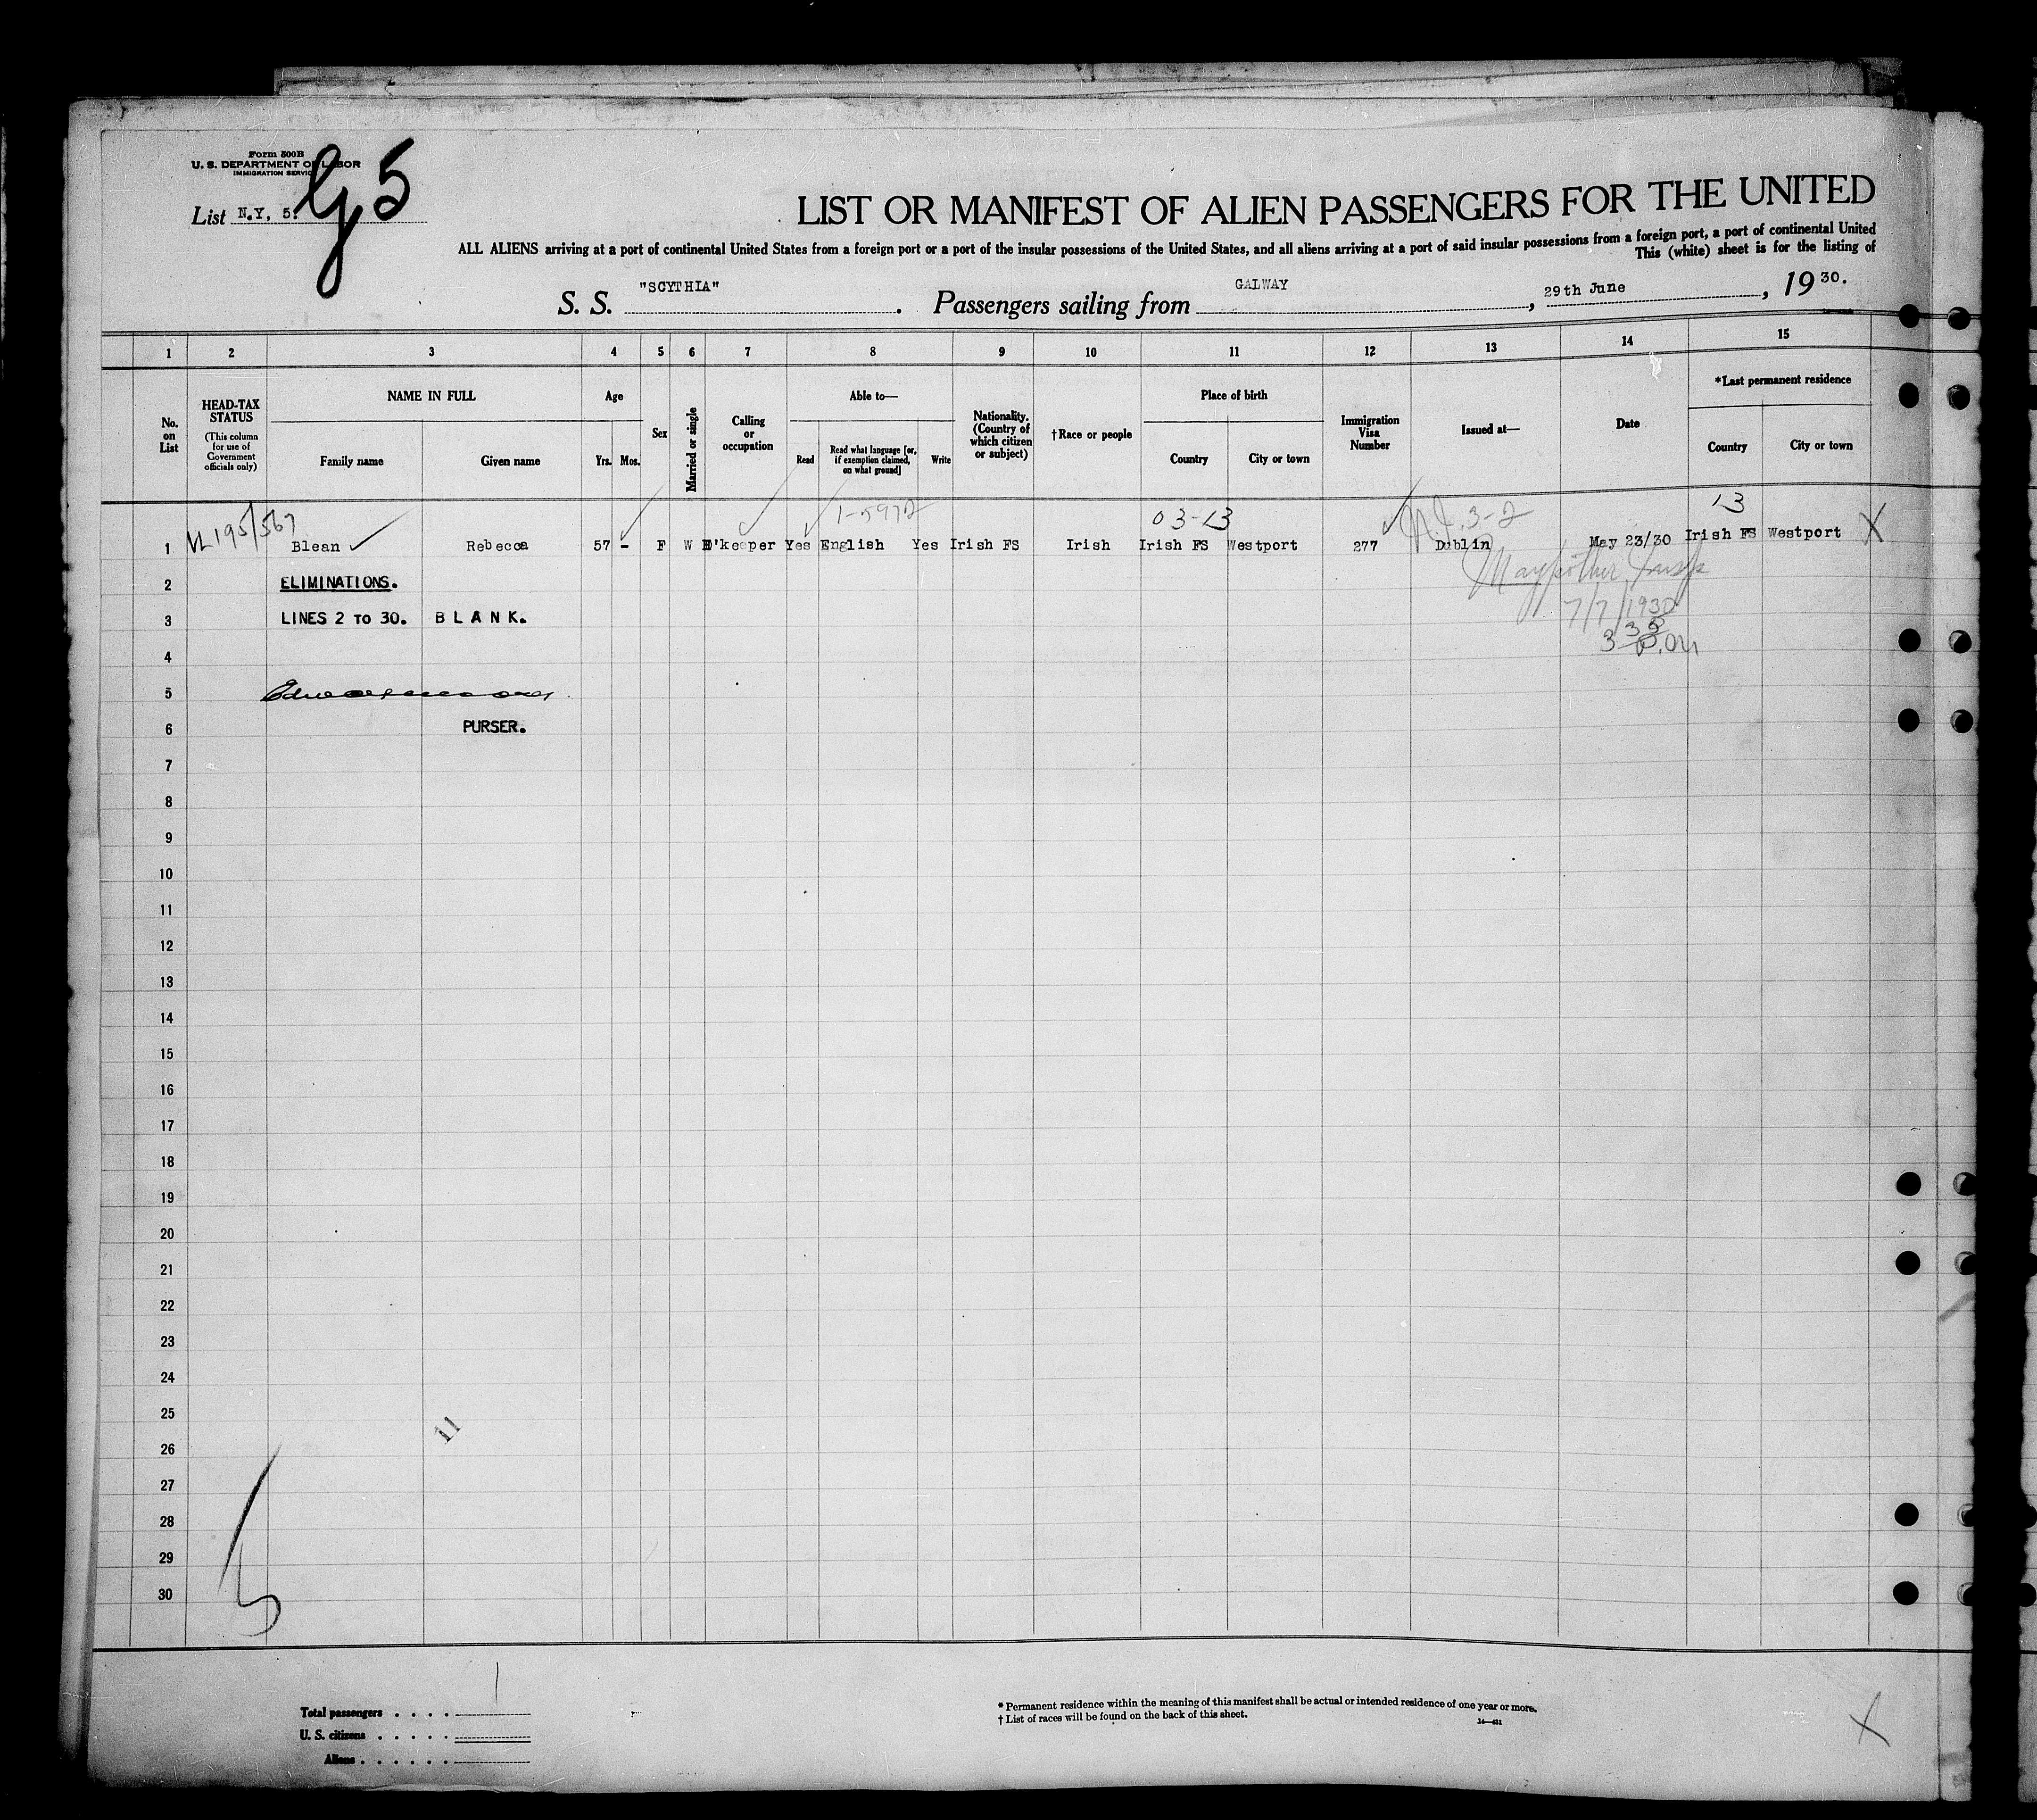 Form 500B
U. S. DEPARTMENT OF LABOR
IMMIGRATION SERVICE
List N.Y. 5.
G 5
LIST OR MANIFEST OF ALIEN PASSENGERS FOR THE UNITED
ALL ALIENS arriving at a port of continental United States from a foreign port or a port of the insular possessions of the United States, and all aliens arriving at a port of said insular possessions from a foreign port, a port of continental United
This (white) sheet is for the listing of
S. S. "SCYTHIA". Passengers sailing from GALWAY, 29th June, 1930.
1 2 3 4 5 6 7 8 9 10 11 12 13 14 15
No. on List
HEAD-TAX STATUS
(This column for use of Government officials only)
NAME IN FULL
Family name Given name
Age
Yrs. Mos.
Sex
Married or single
Calling or occupation
Able to—
Read
Read what language [or, if exemption claimed, on what ground]
Write
Nationality. (Country of which citizen or subject)
†Race or people
Place of birth
Country City or town
Immigration Visa Number
Issued at—
Date
*Last permanent residence
Country City or town
VL 195/567 03-13 13
1 Blean Rebecca 57 - F W H'keeper Yes English Yes Irish FS Irish Irish FS Westport 277 Dublin May 23/30 Irish FS Westport X
2 ELIMINATIONS.
7/7/1930
3 LINES 2 TO 30. BLANK.
4
5
6 PURSER.
7
8
9
10
11
12
13
14
15
16
17
18
19
20
21
22
23
24
25
11
26
27
28
29
30
5
Total passengers . . . . 1
U. S. citizens . . . . .
Aliens . . . . . .
* Permanent residence within the meaning of this manifest shall be actual or intended residence of one year or more.
† List of races will be found on the back of this sheet.
X